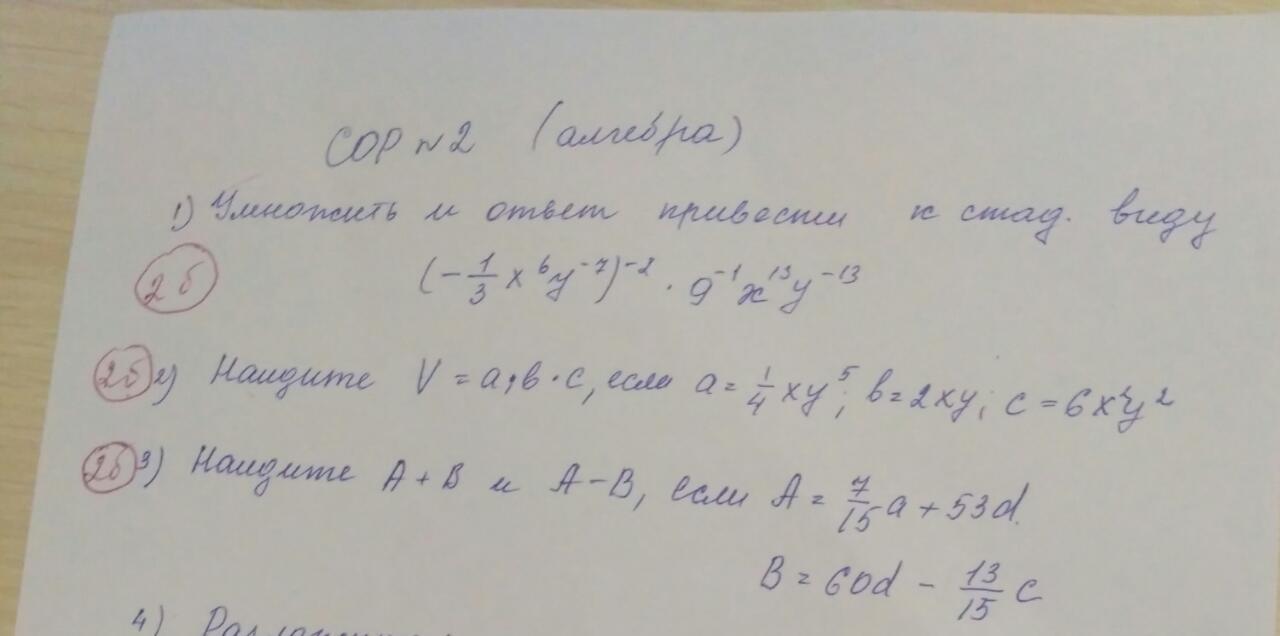 СОР №2 (алгебра)
1) Умножить и ответ привести к стад. виду
2б (-1/3 x⁶y⁻⁷)⁻² · 9⁻¹x¹³y⁻¹³
2б 2) Найдите V = a·b·c, если a = 1/4 xy⁵; b = 2xy; c = 6x²y²
2б 3) Найдите A + B и A - B, если A = 7/15 a + 53d.
B = 60d - 13/15 c
4)